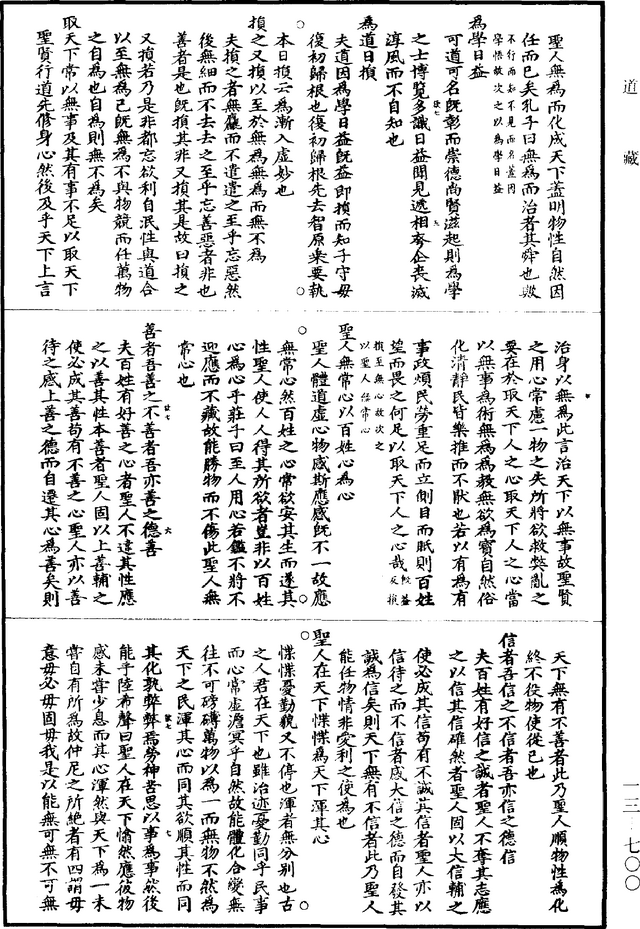 道藏
聖人無為而化成天下蓋明物性自然因
任而已矣孔子曰無為而治者其舜也歟
不行而知不見而名蓋因
學悟故次之以為學日益
為學日益
可道可名既彰而崇德尚賢滋起則為學
之士博覽多識日益聞見遞相夸企喪滅
淳風而不自知也
為道日損
夫道因為學日益既益即損而知子守母
復初歸根也復初歸根先去智原乘要執
本日損云為漸入虛妙也
損之又損以至於無為無為而無不為
夫損之者無麤而不遣遣之至乎忘惡然
後無細而不去去之至乎忘善惡者非也
善者是也既損其非又損其是故曰損之
又損若乃是非都忘欲利自泯性與道合
以至無為己既無為不與物競而任萬物
之自為也自為則無不為矣
取天下常以無事及其有事不足以取天下
聖賢行道先修身心然後及乎天下上言
治身以無為此言治天下以無事故聖賢
之用心常慮一物之失所將欲救弊亂之
要在於取天下人之心取天下人之心當
以無事為術無為為教無欲為寶自然俗
化清靜民皆樂推而不猒也若以有為有
事政煩民勞重足而立側目而眂則百姓
望而畏之何足以取天下人之心哉
損至無心故次之
以聖人無常心
聖人無常心以百姓心為心
聖人體道虛心物感斯應感既不一故應
無常心然百姓之心常欲安其生而遂其
性聖人使人人得其所欲者豈非以百姓
心為心乎莊子曰至人用心若鑑不將不
迎應而不藏故能勝物而不傷此聖人無
常心也
善者吾善之不善者吾亦善之德善
夫百姓有好善之心者聖人不違其性應
之以善其性本善者聖人固以上善輔之
使必成其善苟有不善之心聖人亦以善
待之感上善之德而自遷其心為善矣則
天下無有不善者此乃聖人順物性為化
終不役物使從己也
信者吾信之不信者吾亦信之德信
夫百姓有好信之誠者聖人不奪其志應
之以信其信確然者聖人固以大信輔之
使必成其信苟有不誠其信者聖人亦以
信待之而不信者感大信之德而自發其
誠為信矣則天下無有不信者此乃聖人
能任物情非愛利之使為也
聖人在天下惵惵為天下渾其心
惵惵憂勤貌又不停也渾者無分別也古
之人君在天下也雖治迹憂勤同乎民事
而心常虛澹冥乎自然故能體化合變無
往不可磅礴萬物以為一而無物不然為
天下之民渾其心而同其欲順其性而同
其化孰弊弊焉勞神苦思以事為事然後
能乎陸希聲曰聖人在天下愉然應彼物
感未嘗少息而其心渾然與天下為一未
嘗自有所為故仲尼之所絕者有四謂毋
意毋必毋固毋我是以能無可無不可無
一三 七〇〇